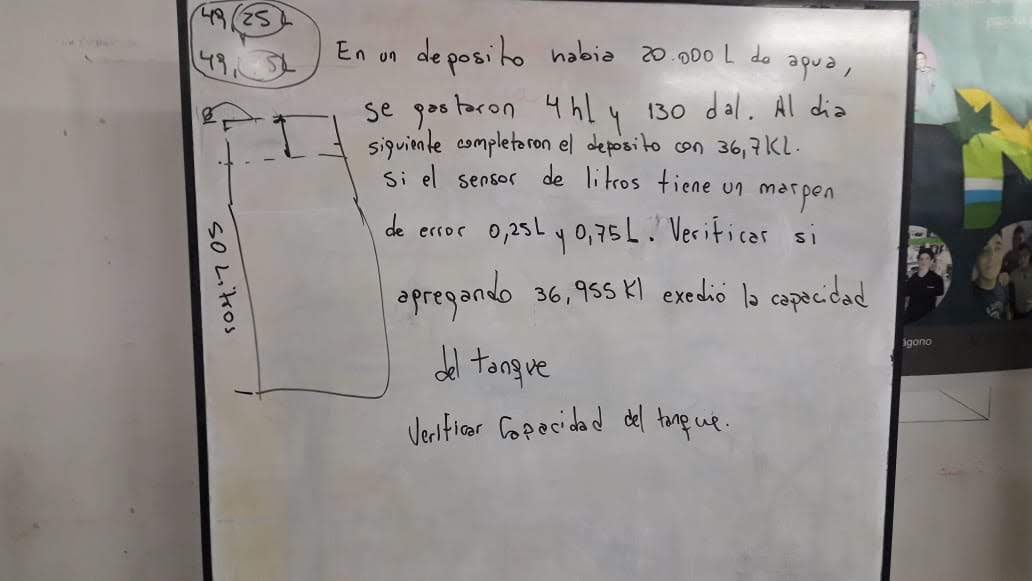 49,25L
49, 5L
En un deposito habia 20.000 L de agua,
se gastaron 4 hl y 130 dal. Al dia
siguiente completaron el deposito con 36,7KL.
si el sensor de litros tiene un margen
de error 0,25L y 0,75L. Verificar si
agregando 36,955Kl exedió la capacidad
del tanque
Verificar Capacidad del tanque.
50 Litros
ágono